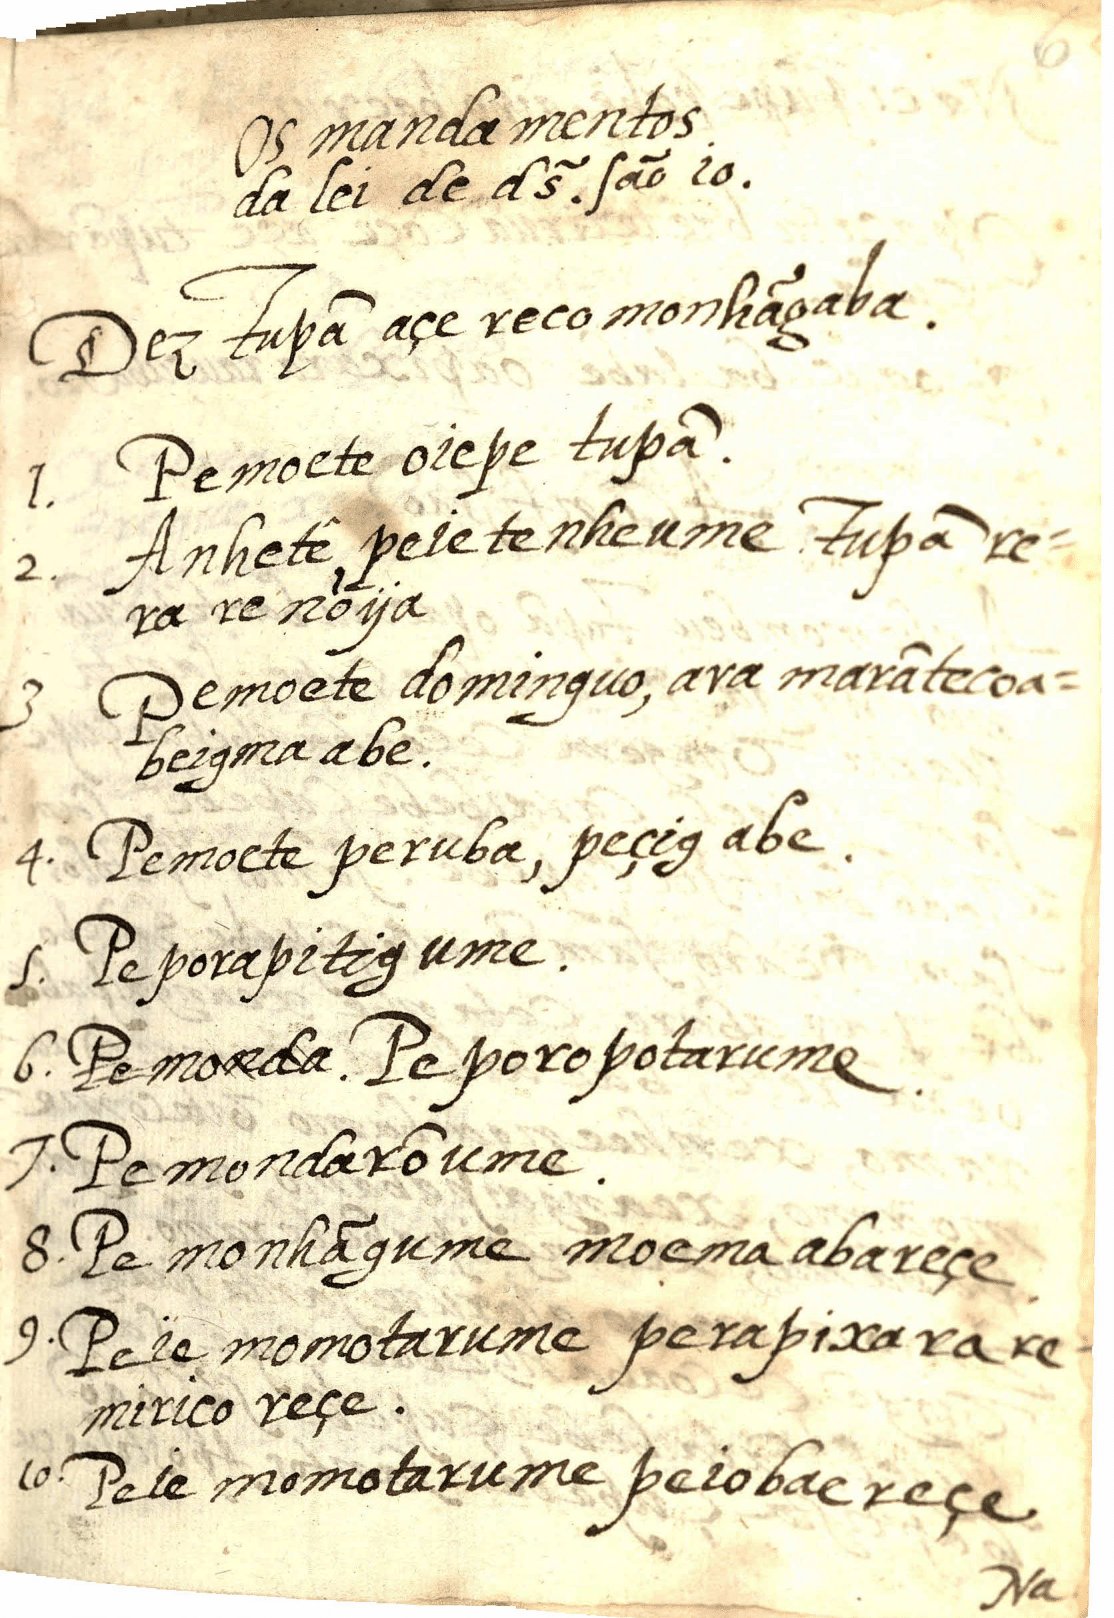 6
Os mandamentos
da lei de ds̃. são 10.
Dez tupã açe reco monhãgaba.
1. Pemoete oiepe tupã.
2. Anhetê, peie tenheume Tupã re=
ra renõija
3 Pemoete dominguo, ara marãtecoa=
beigma abe.
4. Pemoete peruba, peçig abe.
5. Pe porapitig ume.
6. Pe monda. Pe poropotarume.
7. Pe mondarõ ume.
8. Pe monhãgume moema abareçe.
9. Peie momotarume perapixara re-
mirico reçe.
10. Peie momotarume peiobae reçe
Na